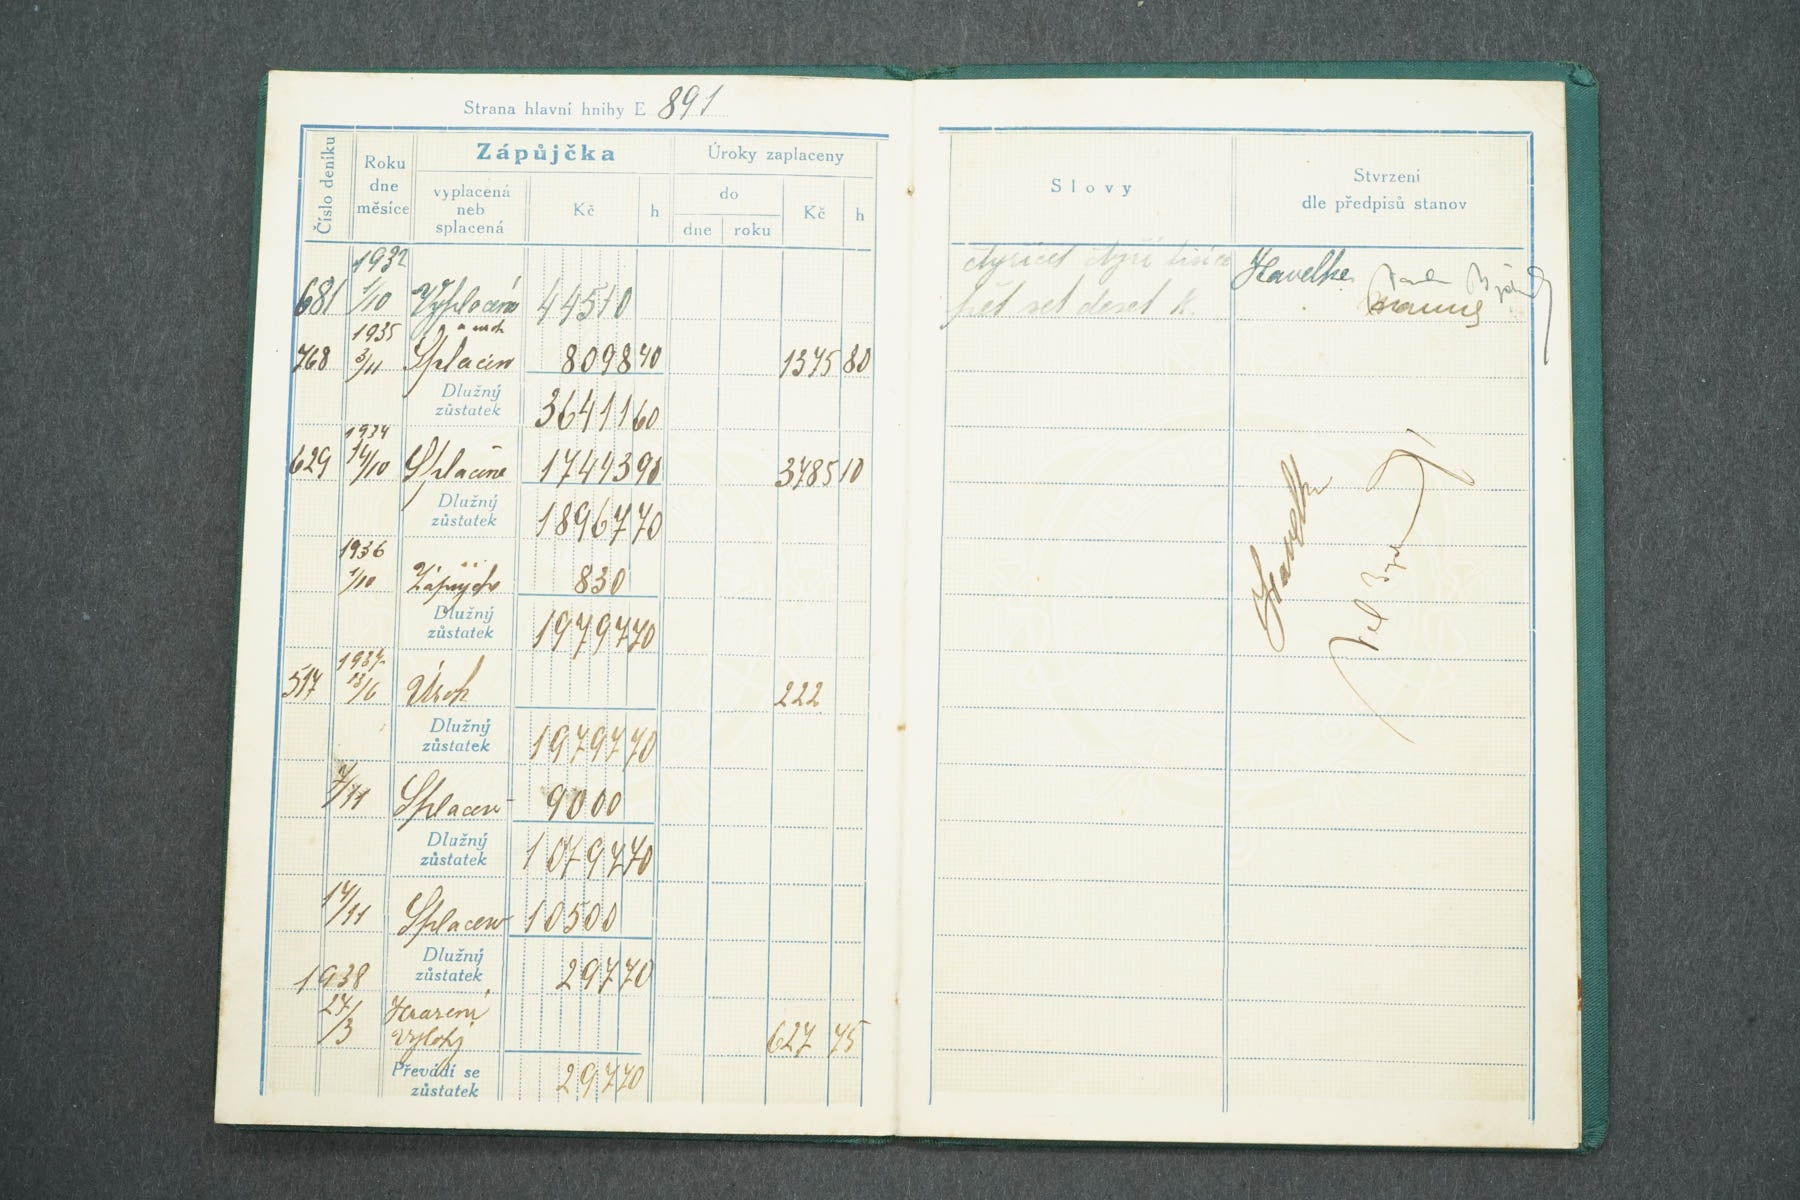 Strana hlavní hniby E 891
Číslo deníku
Roku dne měsíce
Zápůjčka
Úroky zaplaceny
vyplacená neb splacená
Kč
h
do
dne
roku
Kč
h
Slovy
Stvrzení
dle předpisů stanov
1932
681 1/10 Vyplacena 44510
čtyřicet čtyři tisíce Havelka
pět set deset K.
1935
768 3/11 Splacen 8098 40 1375 80
Dlužný zůstatek 36411 60
1934
629 14/10 Splacene 17443 90 3785 10
Dlužný zůstatek 18967 70
1936
1/10 830
Dlužný zůstatek 19797 70
1937
517 13/6 Úrok 222
Dlužný zůstatek 19797 70
7/11 Splacen 9000
Dlužný zůstatek 10797 70
14/11 Splacen 10500
Dlužný zůstatek 297 70
1938
27/3 Hrazení výlohy 627 75
Převádí se zůstatek 297 70
Havelka